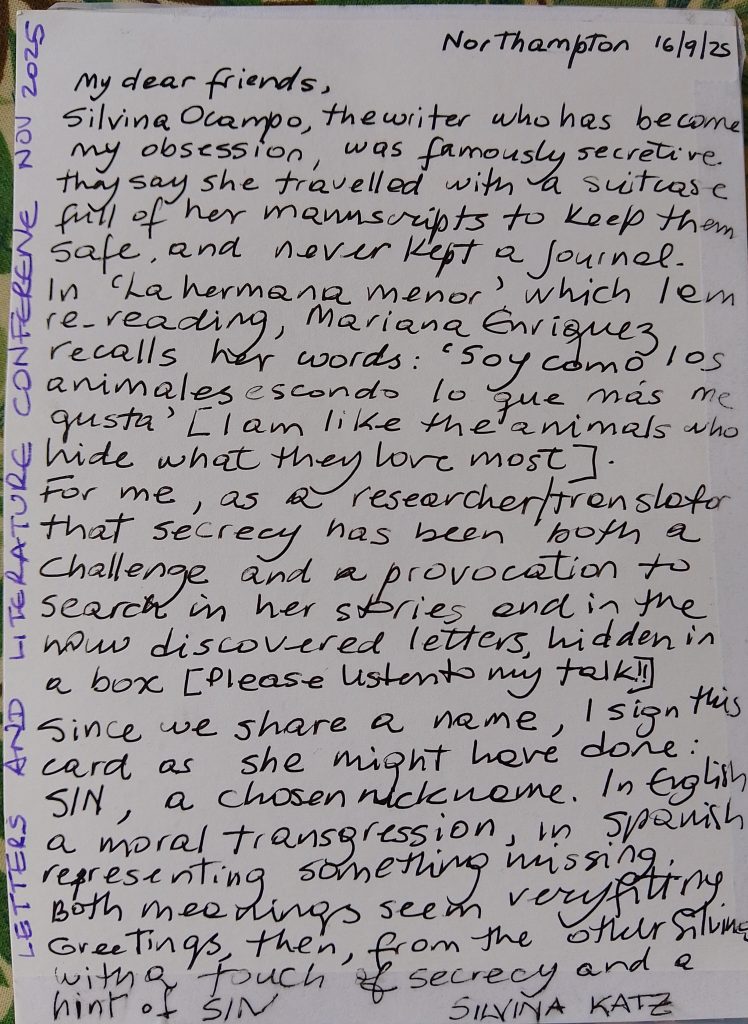 Northampton 16/9/25
My dear friends,
Silvina Ocampo, the writer who has become
my obsession, was famously secretive.
they say she travelled with a suitcase
full of her manuscripts to keep them
safe, and never kept a journal.
In 'La hermana menor', which I am
re-reading, Mariana Enriquez
recalls her words: 'Soy como los
animales escondo lo que más me
gusta' [I am like the animals who
hide what they love most].
For me, as a researcher/translator
that secrecy has been both a
challenge and a provocation to
search in her stories and in the
now discovered letters, hidden in
a box [Please listen to my talk!!]
Since we share a name, I sign this
card as she might have done:
SIN, a chosen nickname. In English
a moral transgression, in Spanish
representing something missing.
Both meanings seem very fitting
Greetings, then, from the other Silvina
with a touch of secrecy and a
hint of SIN
SILVINA KATZ
LETTERS AND LITERATURE CONFERENE NOV 2025